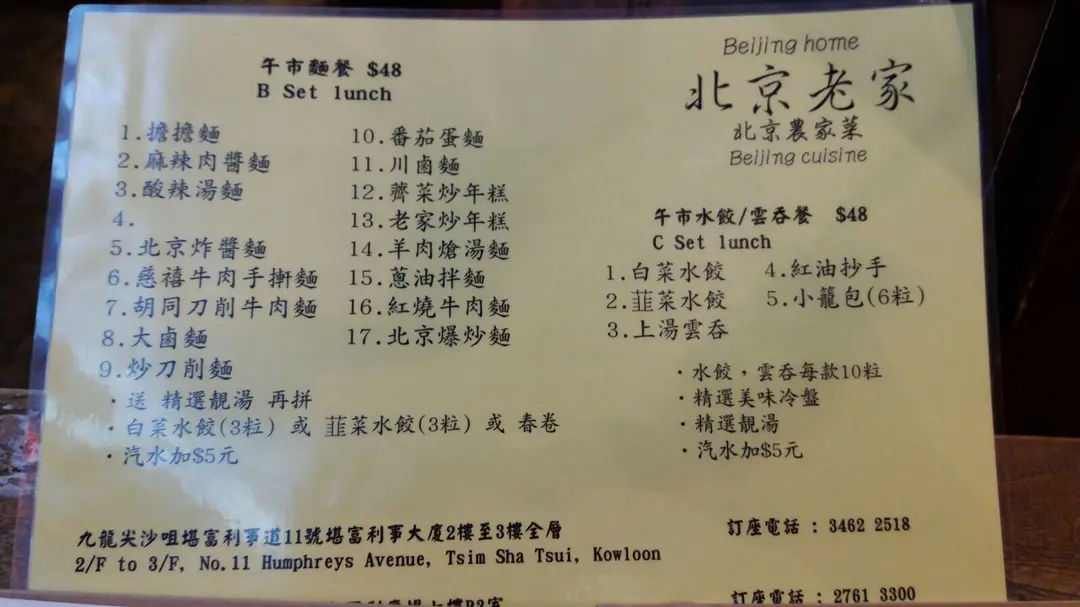 午市麵餐 $48
B Set lunch
1.擔擔麵
2.麻辣肉醬麵
3.酸辣湯麵
4.
5.北京炸醬麵
6.慈禧牛肉手擀麵
7.胡同刀削牛肉麵
8.大鹵麵
9.炒刀削麵
10.番茄蛋麵
11.川鹵麵
12.薺菜炒年糕
13.老家炒年糕
14.羊肉熗湯麵
15.蔥油拌麵
16.紅燒牛肉麵
17.北京爆炒麵
·送 精選靚湯 再拼
·白菜水餃(3粒) 或 韮菜水餃(3粒) 或 春卷
·汽水加$5元
Beijing home
北京老家
北京農家菜
Beijing cuisine
午市水餃/雲吞餐 $48
C Set lunch
1.白菜水餃
2.韮菜水餃
3.上湯雲吞
4.紅油抄手
5.小籠包(6粒)
·水餃，雲吞每款10粒
·精選美味冷盤
·精選靚湯
·汽水加$5元
九龍尖沙咀堪富利事道11號堪富利事大廈2樓至3樓全層
2/F to 3/F, No.11 Humphreys Avenue, Tsim Sha Tsui, Kowloon
訂座電話 : 3462 2518
訂座電話 : 2761 3300